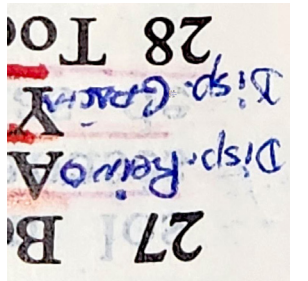 27 B
Disp. Reino A
Disp. Gracia Y
28 To